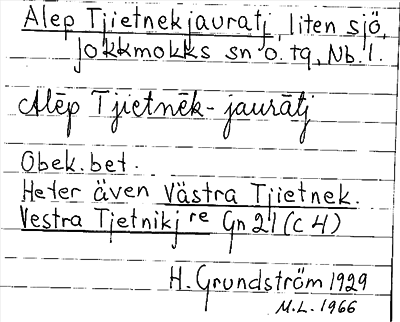 Alep Tjietnekjauratj, liten sjö,
Jokkmokks sn o. tg, Nb. l.
Alēp Tjietnēk-jaurātj
Obek. bet.
Heter även Västra Tjietnek.
Vestra Tjetnikj re Gn 21 (C 4)
H. Grundström 1929
M.L. 1966